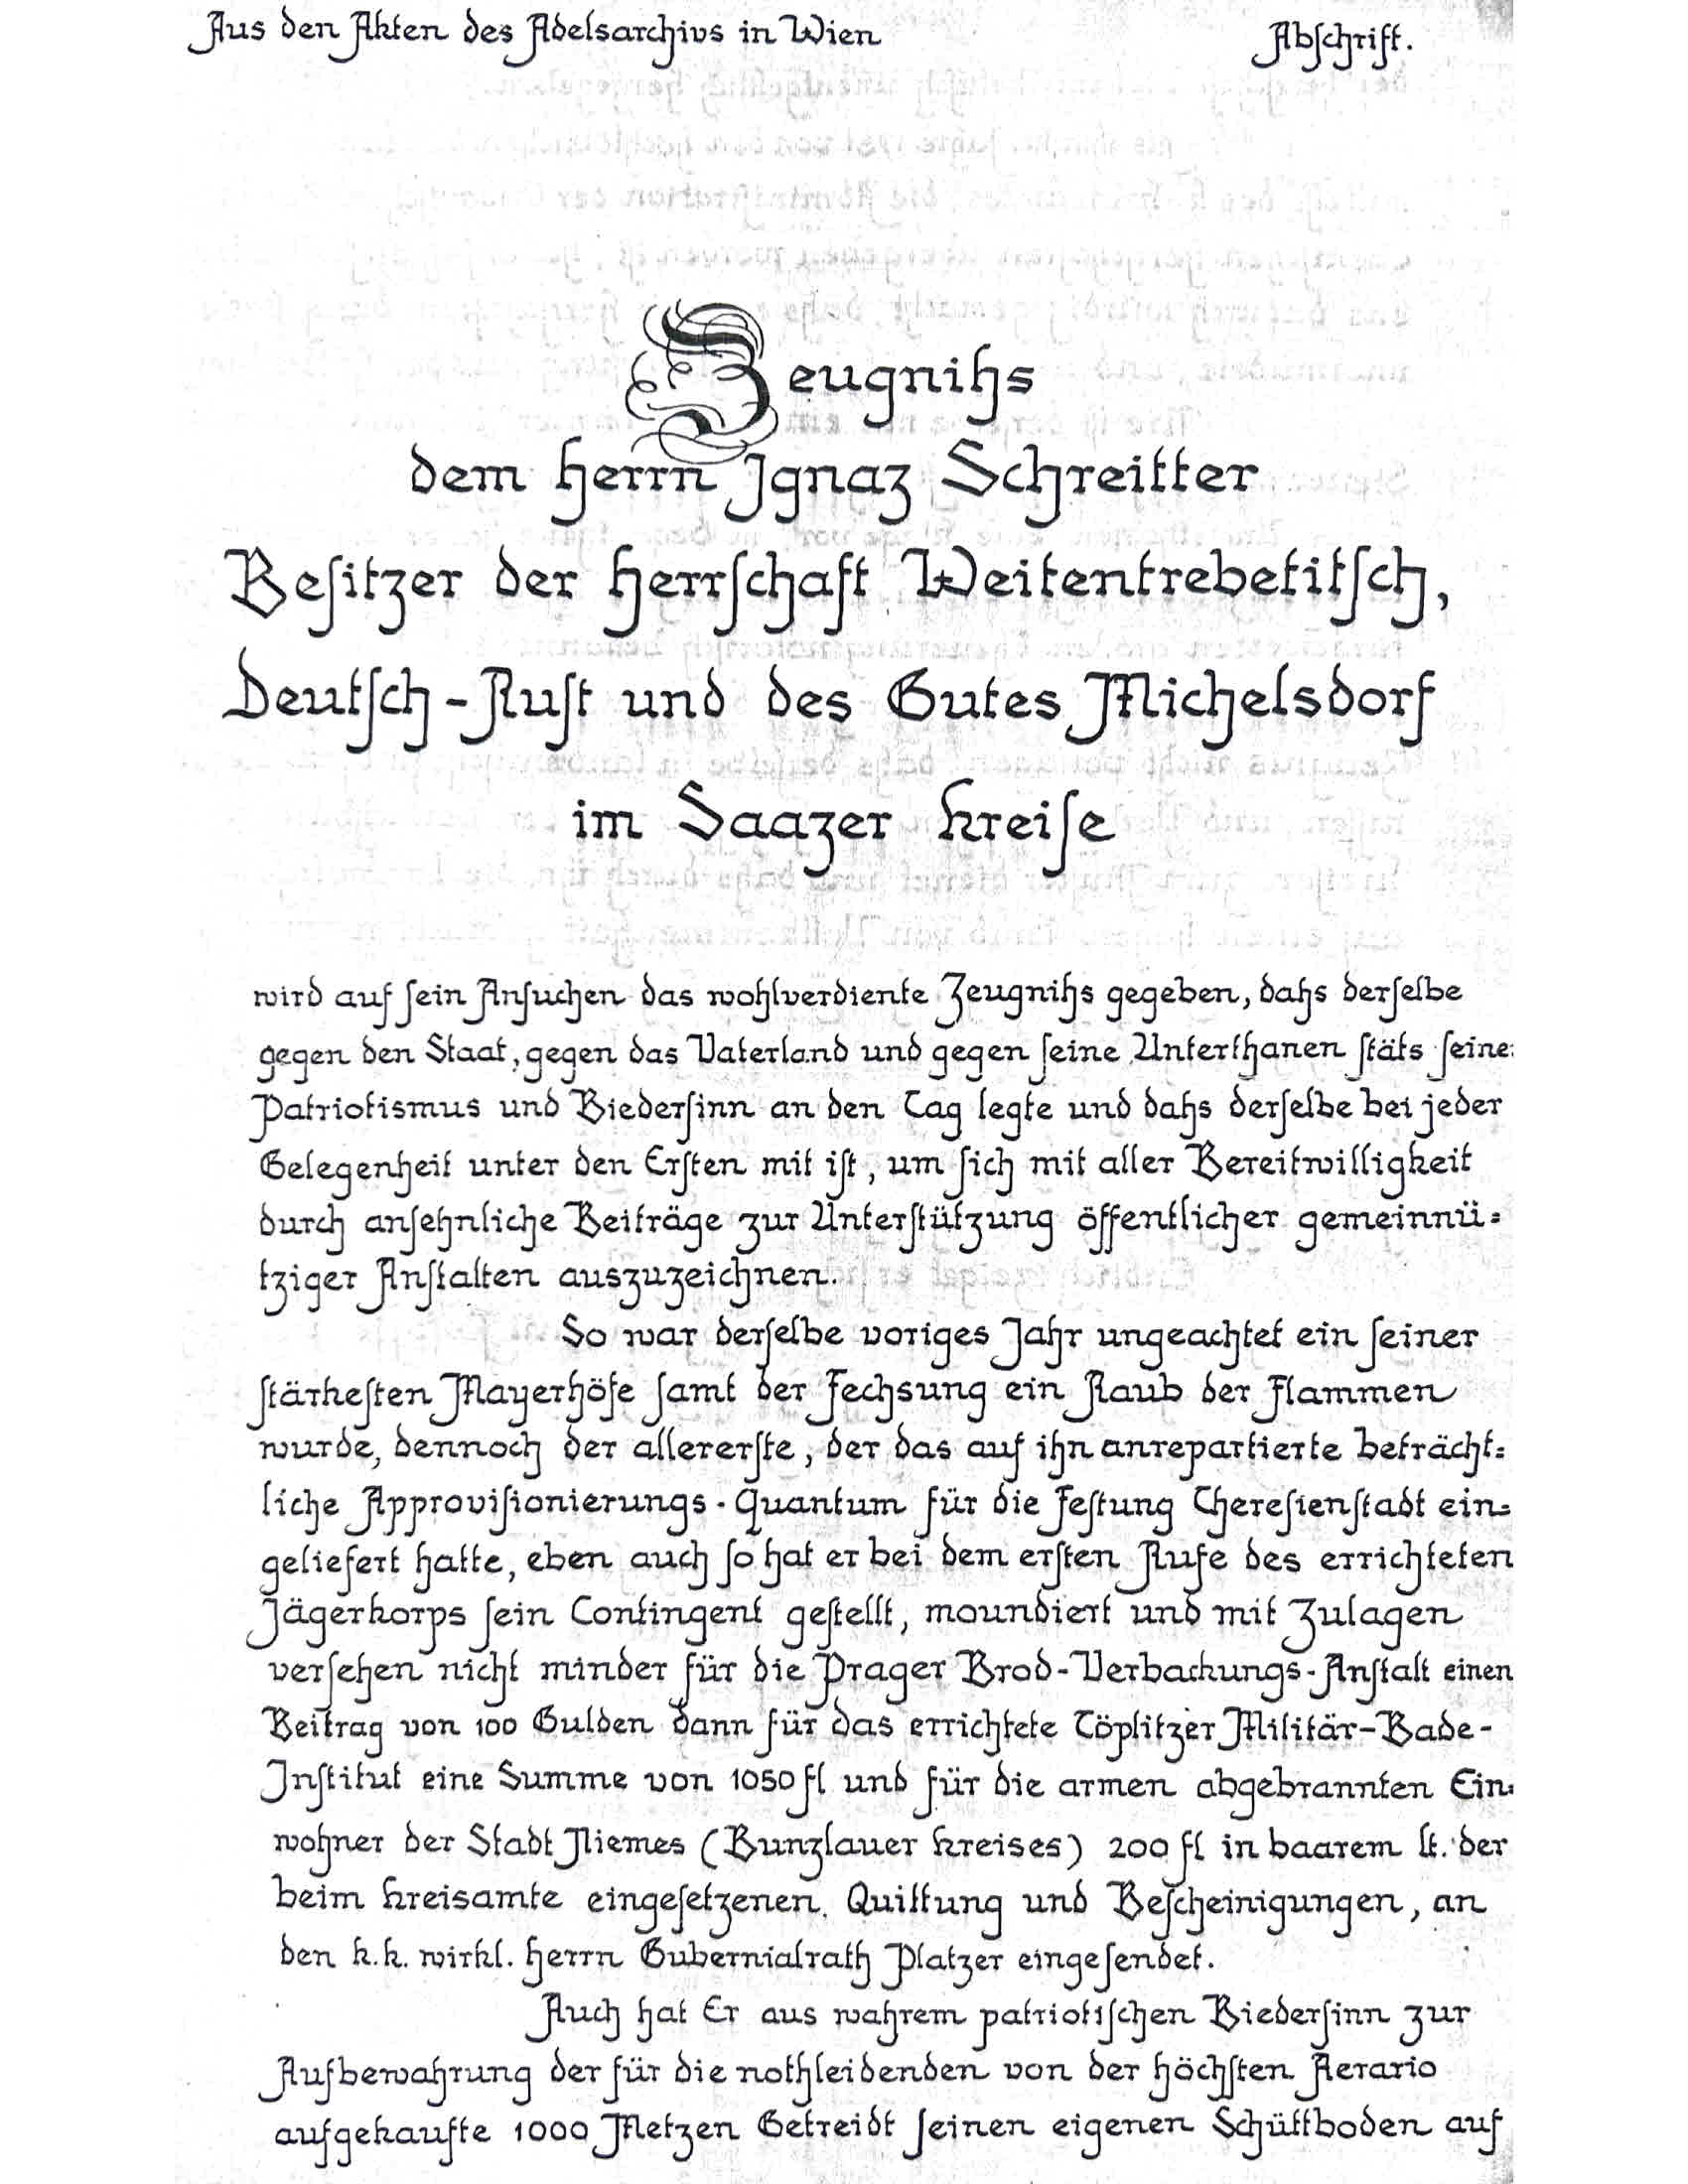 Aus den Akten des Adelsarchivs in Wien
Abschrift.
Zeugnihs
dem Herrn Ignaz Schreitter
Besitzer der Herrschaft Weitentrebetitsch,
Deutsch-Rust und des Gutes Michelsdorf
im Saazer Kreise
wird auf sein Ansuchen das wohlverdiente Zeugnihs gegeben, dahs derselbe
gegen den Staat, gegen das Vaterland und gegen seine Unterthanen stäts seine
Patriotismus und Biedersinn an den Tag legte und dahs derselbe bei jeder
Gelegenheit unter den Ersten mit ist, um sich mit aller Bereitwilligkeit
durch ansehnliche Beiträge zur Unterstützung öffentlicher gemeinnü=
tziger Anstalten auszuzeichnen.
So war derselbe voriges Jahr ungeachtet ein seiner
stärkesten Mayerhöfe samt der Fechsung ein Raub der Flammen
wurde, dennoch der allererste, der das auf ihn anrepartierte beträcht=
liche Approvisionierungs-Quantum für die Festung Theresienstadt ein=
geliefert hatte, eben auch so hat er bei dem ersten Rufe des errichteten
Jägerkorps sein Contingent gestellt, moundiert und mit Zulagen
versehen nicht minder für die Prager Brod-Verbackungs-Anstalt einen
Beitrag von 100 Gulden dann für das errichtete Töplitzer Militär-Bade-
Institut eine Summe von 1050 fl und für die armen abgebrannten Ein=
wohner der Stadt Niemes (Bunzlauer Kreises) 200 fl in baarem lt. der
beim Kreisamte eingesetzenen Quittung und Bescheinigungen, an
den k.k. wirkl. Herrn Gubernialrath Platzer eingesendet.
Auch hat Er aus wahrem patriotischen Biedersinn zur
Aufbewahrung der für die nothleidenden von der höchsten Aerario
aufgekaufte 1000 Metzen Getreidt seinen eigenen Schüttboden auf